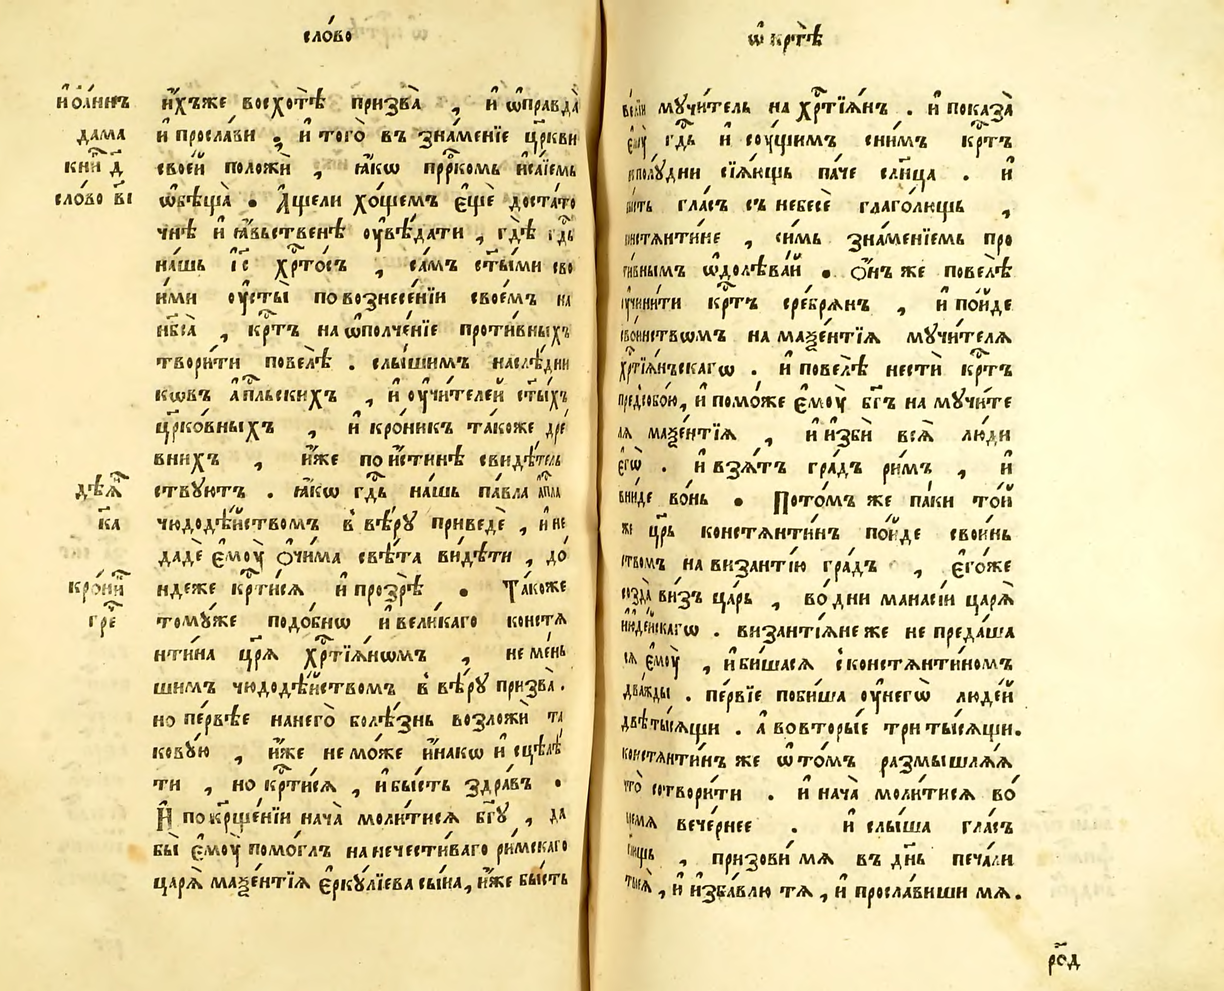 сло́во
и҆оа́ннъ
дама
ски҃н д҃
сло́во в҃і
и҆́хъже восхотѣ̀ призва̀ , и҆ ѡ҆правда̀
и҆ просла́ви , и҆ того̀ въ зна́менїе цр҃кви
свое́й положѝ , ꙗ҆́кѡ прⷪ҇ркомъ и҆са́їемъ
ѡ҆бѣща̀ . А҆́щели хо́щемъ є҆щѐ достато
чнѣ и҆ ꙗ҆́вьственѣ ᲂу҆вѣ́дати , гдѣ̀ гдⷭ҇ь
на́шь і҆с҃ хрⷭ҇то́съ , са́мъ ст҃ы́ми сво
и́ми ᲂу҆сты̀ по вознесе́нїи свое́мъ на
нб҃са̀ , крⷭ҇тъ на ѡ҆полче́нїе проти́вныхъ
твори́ти повелѣ̀ . слы́шимъ наслѣ́дни
кѡвъ а҆пⷭ҇льскихъ , и҆ ᲂу҆чи́телей ст҃ы́хъ
цр҃ко́вныхъ , и҆ кро́никъ та́коже дре
внихъ , и҆́же по и҆́стинѣ свидѣ́тель
ствꙋютъ . ꙗ҆́кѡ гдⷭ҇ь на́шь па́вла а҆пⷭ҇ла
дѣѧ҃
к҃а
чюдодѣ́йствомъ в вѣ́рꙋ приведѐ , и҆ не
дадѐ є҆мᲂу̀ ѻ҆чи́ма свѣ́та ви́дѣти , до́
ндеже крⷭ҇ти́сѧ и҆ прозрѣ̀ . Та́коже
кро́ни
гре
томꙋже подо́бнѡ и҆ вели́каго констѧ
нти́на цр҃ѧ̀ хрⷭ҇тїѧ́нѡмъ , не ме́нь
шимъ чюдодѣ́йствомъ в вѣ́рꙋ призва̀ .
но пе́рвѣе на него̀ болѣ́знь возложѝ та
ковꙋ́ю , и҆́же не мо́же и҆на́кѡ и҆сцѣлѣ́
ти , но крⷭ҇ти́сѧ , и҆ бы́сть здра́въ .
И҆ по крⷳ҇ще́нїи нача̀ моли́тисѧ бг҃ꙋ , да
бы̀ є҆мᲂу̀ помо́глъ на нечести́ваго ри́мскаго
царѧ̀ маѯе́нтїѧ є҆ркꙋ́лїева сы́на , и҆́же бы́сть
ѡ҆ крⷭ҇тѣ̀
ве́лїи мꙋчи́тель на хрⷭ҇тїѧ́нъ . и҆ показа̀
є҆мᲂу̀ гдⷭ҇ь и҆ сᲂу́щимъ с ни́мъ крⷭ҇тъ
в полꙋ́дни сїѧ́ющь па́че сл҃нца . и҆
бы́сть гла́съ съ небесѐ глаго́лющь ,
констѧнти́не , си́мь зна́менїемь про
ти́внымъ ѡ҆долѣва́й . Ѻ҆́нъ же повелѣ̀
ᲂу҆чини́ти крⷭ҇тъ сре́брѧнъ , и҆ по́йде
с во́инствѡмъ на маѯе́нтїѧ мꙋчи́телѧ
хрⷭ҇тїѧ́нъскагѡ . и҆ повелѣ̀ нестѝ крⷭ҇тъ
предсобо́ю , и҆ помо́же є҆мᲂу̀ бг҃ъ на мꙋчи́те
лѧ маѯе́нтїѧ , и҆ и҆збѝ всѧ̀ лю́ди
є҆гѡ̀ . и҆ взѧ́тъ гра́дъ ри́мъ , и҆
вни́де во́нь . Пото́мъ же па́ки то́й
же цр҃ь констѧнти́нъ по́йде с во́инь
ствомъ на византі́ю гра́дъ , є҆го́же
созда̀ ви́зъ ца́рь , во дни манасі́и царѧ̀
и҆юде́йскагѡ . византі́ѧне же не преда́ша
сѧ є҆мᲂу̀ , и҆ би́шасѧ с констѧнти́номъ
два́жды . пе́рвїе поби́ша ᲂу҆ негѡ̀ люде́й
двѣ̀ ты́сѧщи . а҆ во вторы́е три ты́сѧщи .
констѧнти́нъ же ѡ҆ то́мъ размышлѧ́ѧ
что̀ сотвори́ти . и҆ нача̀ моли́тисѧ во
вре́мѧ вече́рнее . и҆ слы́ша гла́съ
, призови́ мѧ въ дн҃ь печа́ли
твоеѧ̀ , и҆ и҆зба́влю тѧ , и҆ просла́виши мѧ .
ро́д